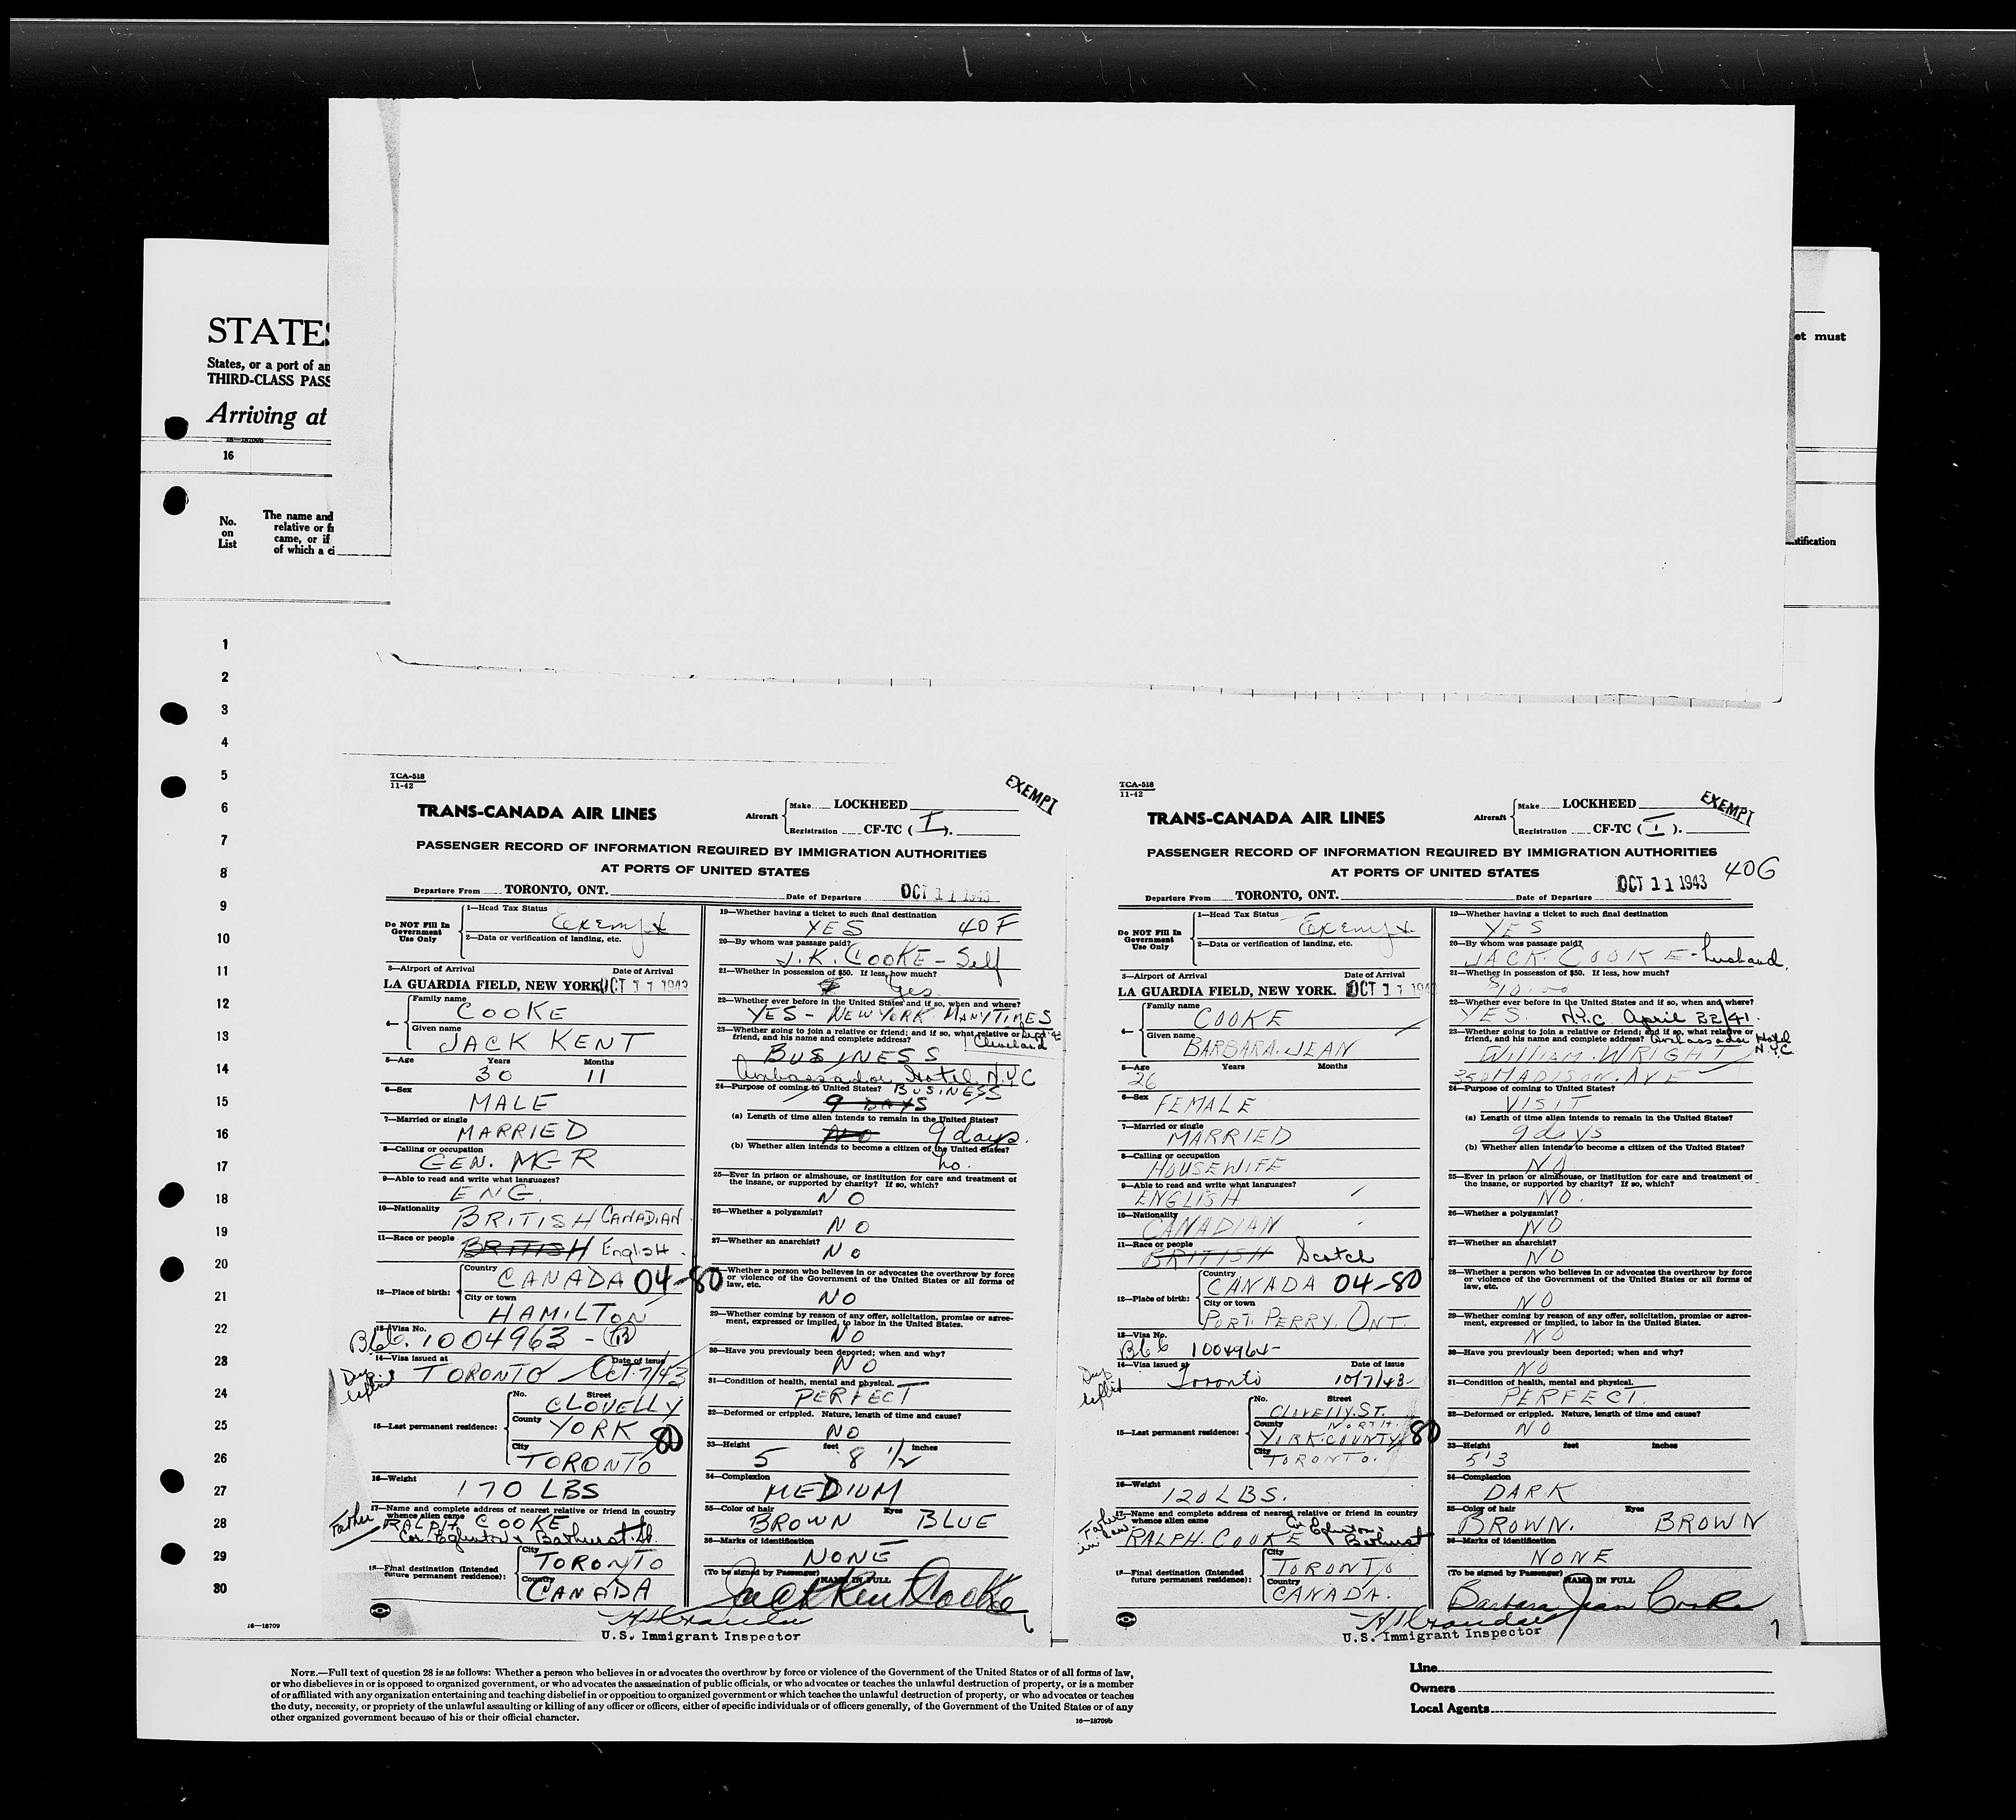 STATES
States, or a port of an
THIRD-CLASS PASS
Arriving at
16—18709b
16
No.
on
List
The name and
relative or fr
came, or if
of which a ci
et must
ntification
1
2
3
4
5
6
7
8
9
10
11
12
13
14
15
16
17
18
19
20
21
22
23
24
25
26
27
28
29
30
TCA-518
11-42
EXEMPT
TRANS-CANADA AIR LINES
Aircraft
Make LOCKHEED
Registration CF-TC ( I ).
PASSENGER RECORD OF INFORMATION REQUIRED BY IMMIGRATION AUTHORITIES
AT PORTS OF UNITED STATES
Departure From TORONTO, ONT.
Date of Departure OCT 11 1943
Do NOT Fill In
Government
Use Only
1—Head Tax Status Exempt
2—Data or verification of landing, etc.
3—Airport of Arrival Date of Arrival
LA GUARDIA FIELD, NEW YORK OCT 11 1943
4—
Family name
COOKE
Given name
JACK KENT
5—Age Years Months
30 11
6—Sex
MALE
7—Married or single
MARRIED
8—Calling or occupation
GEN. MGR
9—Able to read and write what languages?
ENG.
10—Nationality
BRITISH CANADIAN
11—Race or people
BRITISH English
12—Place of birth:
Country
CANADA 04-80
City or town
HAMILTON
13—Visa No.
B66. 1004963 -
14—Visa issued at Date of issue
TORONTO Oct. 7/43
15—Last permanent residence:
No. Street
CLOVELLY
County
YORK 80
City
TORONTO
16—Weight
170 LBS
17—Name and complete address of nearest relative or friend in country
whence alien came
Father
RALPH COOKE
Cor. Eglinton & Bathurst St
18—Final destination (Intended
future permanent residence):
City
TORONTO
Country
CANADA
19—Whether having a ticket to such final destination
YES 40F
20—By whom was passage paid?
J.K. COOKE - Self
21—Whether in possession of $50. If less, how much?
Yes
22—Whether ever before in the United States and if so, when and where?
YES - NEW YORK MANY TIMES
23—Whether going to join a relative or friend; and if so, what relative or
friend, and his name and complete address?
Cleveland
BUSINESS
Ambassador Hotel N.Y.C
24—Purpose of coming to United States? BUSINESS
9 DAYS
(a) Length of time alien intends to remain in the United States?
NO 9 days.
(b) Whether alien intends to become a citizen of the United States?
no.
25—Ever in prison or almshouse, or institution for care and treatment of
the insane, or supported by charity? If so, which?
NO
26—Whether a polygamist?
NO
27—Whether an anarchist?
NO
Whether a person who believes in or advocates the overthrow by force
or violence of the Government of the United States or all forms of
law, etc.
NO
29—Whether coming by reason of any offer, solicitation, promise or agree-
ment, expressed or implied, to labor in the United States.
NO
30—Have you previously been deported; when and why?
NO
31—Condition of health, mental and physical.
PERFECT
32—Deformed or crippled. Nature, length of time and cause?
NO
33—Height feet inches
5 8 1/2
34—Complexion
MEDIUM
35—Color of hair Eyes
BROWN BLUE
36—Marks of identification
NONE
(To be signed by Passenger) NAME IN FULL
Jack Kent Cooke
U.S. Immigrant Inspector
6
TCA-518
11-42
EXEMPT
TRANS-CANADA AIR LINES
Aircraft
Make LOCKHEED
Registration CF-TC ( I ).
PASSENGER RECORD OF INFORMATION REQUIRED BY IMMIGRATION AUTHORITIES
AT PORTS OF UNITED STATES
40G
Departure From TORONTO, ONT.
Date of Departure OCT 11 1943
Do NOT Fill In
Government
Use Only
1—Head Tax Status Exempt
2—Data or verification of landing, etc.
3—Airport of Arrival Date of Arrival
LA GUARDIA FIELD, NEW YORK. OCT 11 194
4—
Family name
COOKE
Given name
BARBARA. JEAN
5—Age Years Months
26
6—Sex
FEMALE
7—Married or single
MARRIED
8—Calling or occupation
HOUSEWIFE
9—Able to read and write what languages?
ENGLISH
10—Nationality
CANADIAN
11—Race or people
BRITISH Scotch
12—Place of birth:
Country
CANADA 04-80
City or town
PORT. PERRY. ONT.
13—Visa No.
B66 1004964-
14—Visa issued at Date of issue
Toronto 10/7/43
15—Last permanent residence:
No. Street
CLOVELLY. ST.
County NORTH.
YORK. COUNTY 80
City
TORONTO.
16—Weight
120 LBS.
17—Name and complete address of nearest relative or friend in country
whence alien came
Father in law
RALPH. COOKE Cor Eglinton & Bathurst
18—Final destination (Intended
future permanent residence):
City
TORONTO
Country
CANADA.
19—Whether having a ticket to such final destination
YES
20—By whom was passage paid?
JACK. COOKE - husband.
21—Whether in possession of $50. If less, how much?
$10.00
22—Whether ever before in the United States and if so, when and where?
YES. N.Y.C. April
23—Whether going to join a relative or friend; and if so, what relative or
friend, and his name and complete address? Ambassador Hotel N.Y.C.
WILLIAM. WRIGHT
350 MADISON. AVE
24—Purpose of coming to United States?
VISIT
(a) Length of time alien intends to remain in the United States?
9 days
(b) Whether alien intends to become a citizen of the United States?
NO
25—Ever in prison or almshouse, or institution for care and treatment of
the insane, or supported by charity? If so, which?
NO.
26—Whether a polygamist?
NO
27—Whether an anarchist?
NO
28—Whether a person who believes in or advocates the overthrow by force
or violence of the Government of the United States or all forms of
law, etc.
NO
29—Whether coming by reason of any offer, solicitation, promise or agree-
ment, expressed or implied, to labor in the United States.
NO
30—Have you previously been deported; when and why?
NO
31—Condition of health, mental and physical.
PERFECT.
32—Deformed or crippled. Nature, length of time and cause?
NO
33—Height feet inches
5'3
34—Complexion
DARK
35—Color of hair Eyes
BROWN. BROWN
36—Marks of identification
NONE
(To be signed by Passenger) NAME IN FULL
Barbara Jean Cooke
U.S. Immigrant Inspector
7
16—18709
NOTE.—Full text of question 28 is as follows: Whether a person who believes in or advocates the overthrow by force or violence of the Government of the United States or of all forms of law,
or who disbelieves in or is opposed to organized government, or who advocates the assassination of public officials, or who advocates or teaches the unlawful destruction of property, or is a member
of or affiliated with any organization entertaining and teaching disbelief in or opposition to organized government or which teaches the unlawful destruction of property, or who advocates or teaches
the duty, necessity, or propriety of the unlawful assaulting or killing of any officer or officers, either of specific individuals or of officers generally, of the Government of the United States or of any
other organized government because of his or their official character.
16—18709b
Line
Owners
Local Agents